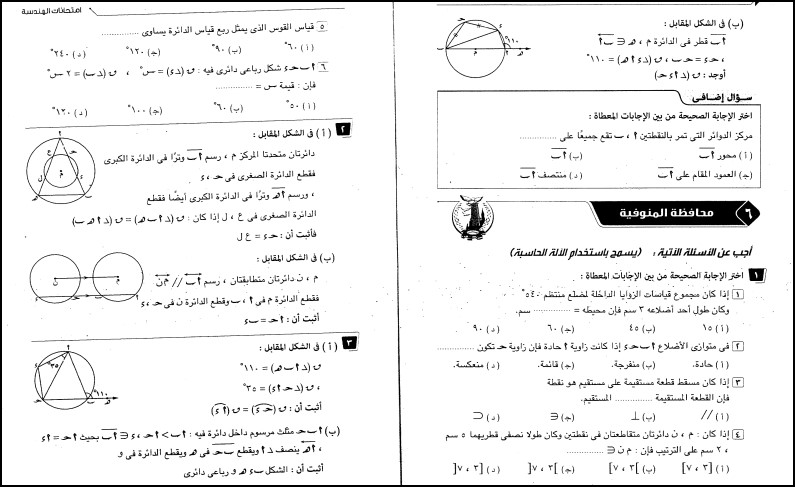 (ب) فى الشكل المقابل :
أب قطر فى الدائرة م ، هـ ∈ ب أ
، حـ ء = حـ ب ، ق (د ء أ هـ) = ١١٠°
أوجد : ق (د أ ء حـ)
سؤال إضافى
اختر الإجابة الصحيحة من بين الإجابات المعطاة :
مركز الدوائر التى تمر بالنقطتين أ ، ب تقع جميعًا على ...............
(أ) محور أب (ب) أب
(جـ) العمود المقام على أب (د) منتصف أب
٦ محافظة المنوفية
أجب عن الأسئلة الآتية : (يسمح باستخدام الآلة الحاسبة)
١ اختر الإجابة الصحيحة من بين الإجابات المعطاة :
١ إذا كان مجموع قياسات الزوايا الداخلة لمضلع منتظم ٥٤٠°
وكان طول أحد أضلاعه ٣ سم فإن محيطه = ............... سم.
(أ) ١٥ (ب) ٤٥ (جـ) ٦٠ (د) ٩٠
٢ فى متوازى الأضلاع أ ب حـ ء إذا كانت زاوية أ حادة فإن زاوية حـ تكون ...............
(أ) حادة. (ب) منفرجة. (جـ) قائمة. (د) منعكسة.
٣ إذا كان مسقط قطعة مستقيمة على مستقيم هو نقطة
فإن القطعة المستقيمة ............... المستقيم.
(أ) // (ب) ⊥ (جـ) ∈ (د) ⊂
٤ إذا كان : م ، ن دائرتان متقاطعتان فى نقطتين وكان طولا نصفى قطريهما ٥ سم
، ٢ سم على الترتيب فإن : م ن ∈ ...............
(أ) [٣ ، ٧] (ب) ]٣ ، ٧] (جـ) ]٣ ، ٧[ (د) [٣ ، ٧[
امتحانات الهندسة
٥ قياس القوس الذى يمثل ربع قياس الدائرة يساوى ...............
(أ) ٦٠° (ب) ٩٠° (جـ) ١٢٠° (د) ٢٤٠°
٦ أ ب حـ ء شكل رباعى دائرى فيه : ق (د ء) = س° ، ق (د ب) = ٢ س°
فإن : قيمة س = ...............
(أ) ٥٠° (ب) ٦٠° (جـ) ١٠٠° (د) ١٢٠°
٢ (أ) فى الشكل المقابل :
دائرتان متحدتا المركز م ، رسم أب وترًا فى الدائرة الكبرى
فقطع الدائرة الصغرى فى حـ ، ء
، ورسم أهـ وترًا فى الدائرة الكبرى أيضًا فقطع
الدائرة الصغرى فى ع ، ل إذا كان : ق (د أ ب هـ) = ق (د أ هـ ب)
فأثبت أن : حـ ء = ع ل
(ب) فى الشكل المقابل :
م ، ن دائرتان متطابقتان ، رسم أب // م ن
فقطع الدائرة م فى أ ، ب وقطع الدائرة ن فى حـ ، ء
أثبت أن : أ حـ = ب ء
٣ (أ) فى الشكل المقابل :
ق (د أ ب هـ) = ١١٠°
، ق (د حـ أ ء) = ٣٥°
أثبت أن : ق (حـ ء) = ق (أ ء)
(ب) أ ب حـ مثلث مرسوم داخل دائرة فيه : أ ب > أ حـ ، ء ∈ أب بحيث أ حـ = أ ء
، أهـ ينصف د أ ويقطع ب حـ فى هـ ويقطع الدائرة فى و
أثبت أن : الشكل ب ء هـ و رباعى دائرى